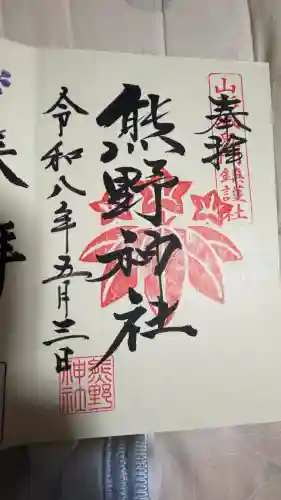 奉拝
山
鎮護社
熊野神社
令和八年五月三日
熊野
神社
拝